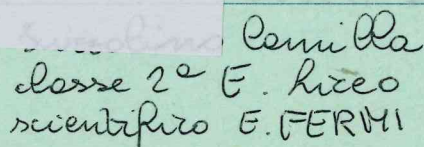 Camilla
classe 2ª E. Liceo
scientifico E. FERMI